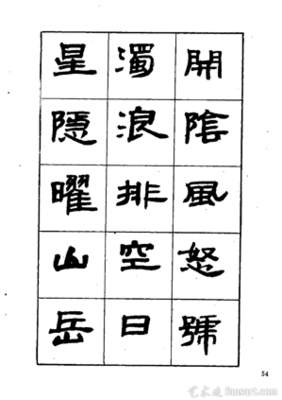 開陰風怒號
濁浪排空日
星隱曜山岳
54
艺术迷 fmsart.com